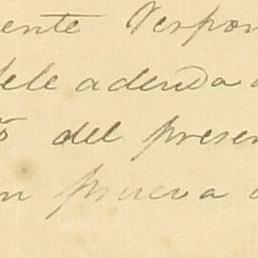 ente Respon
dele adenda
del presen
n prueva